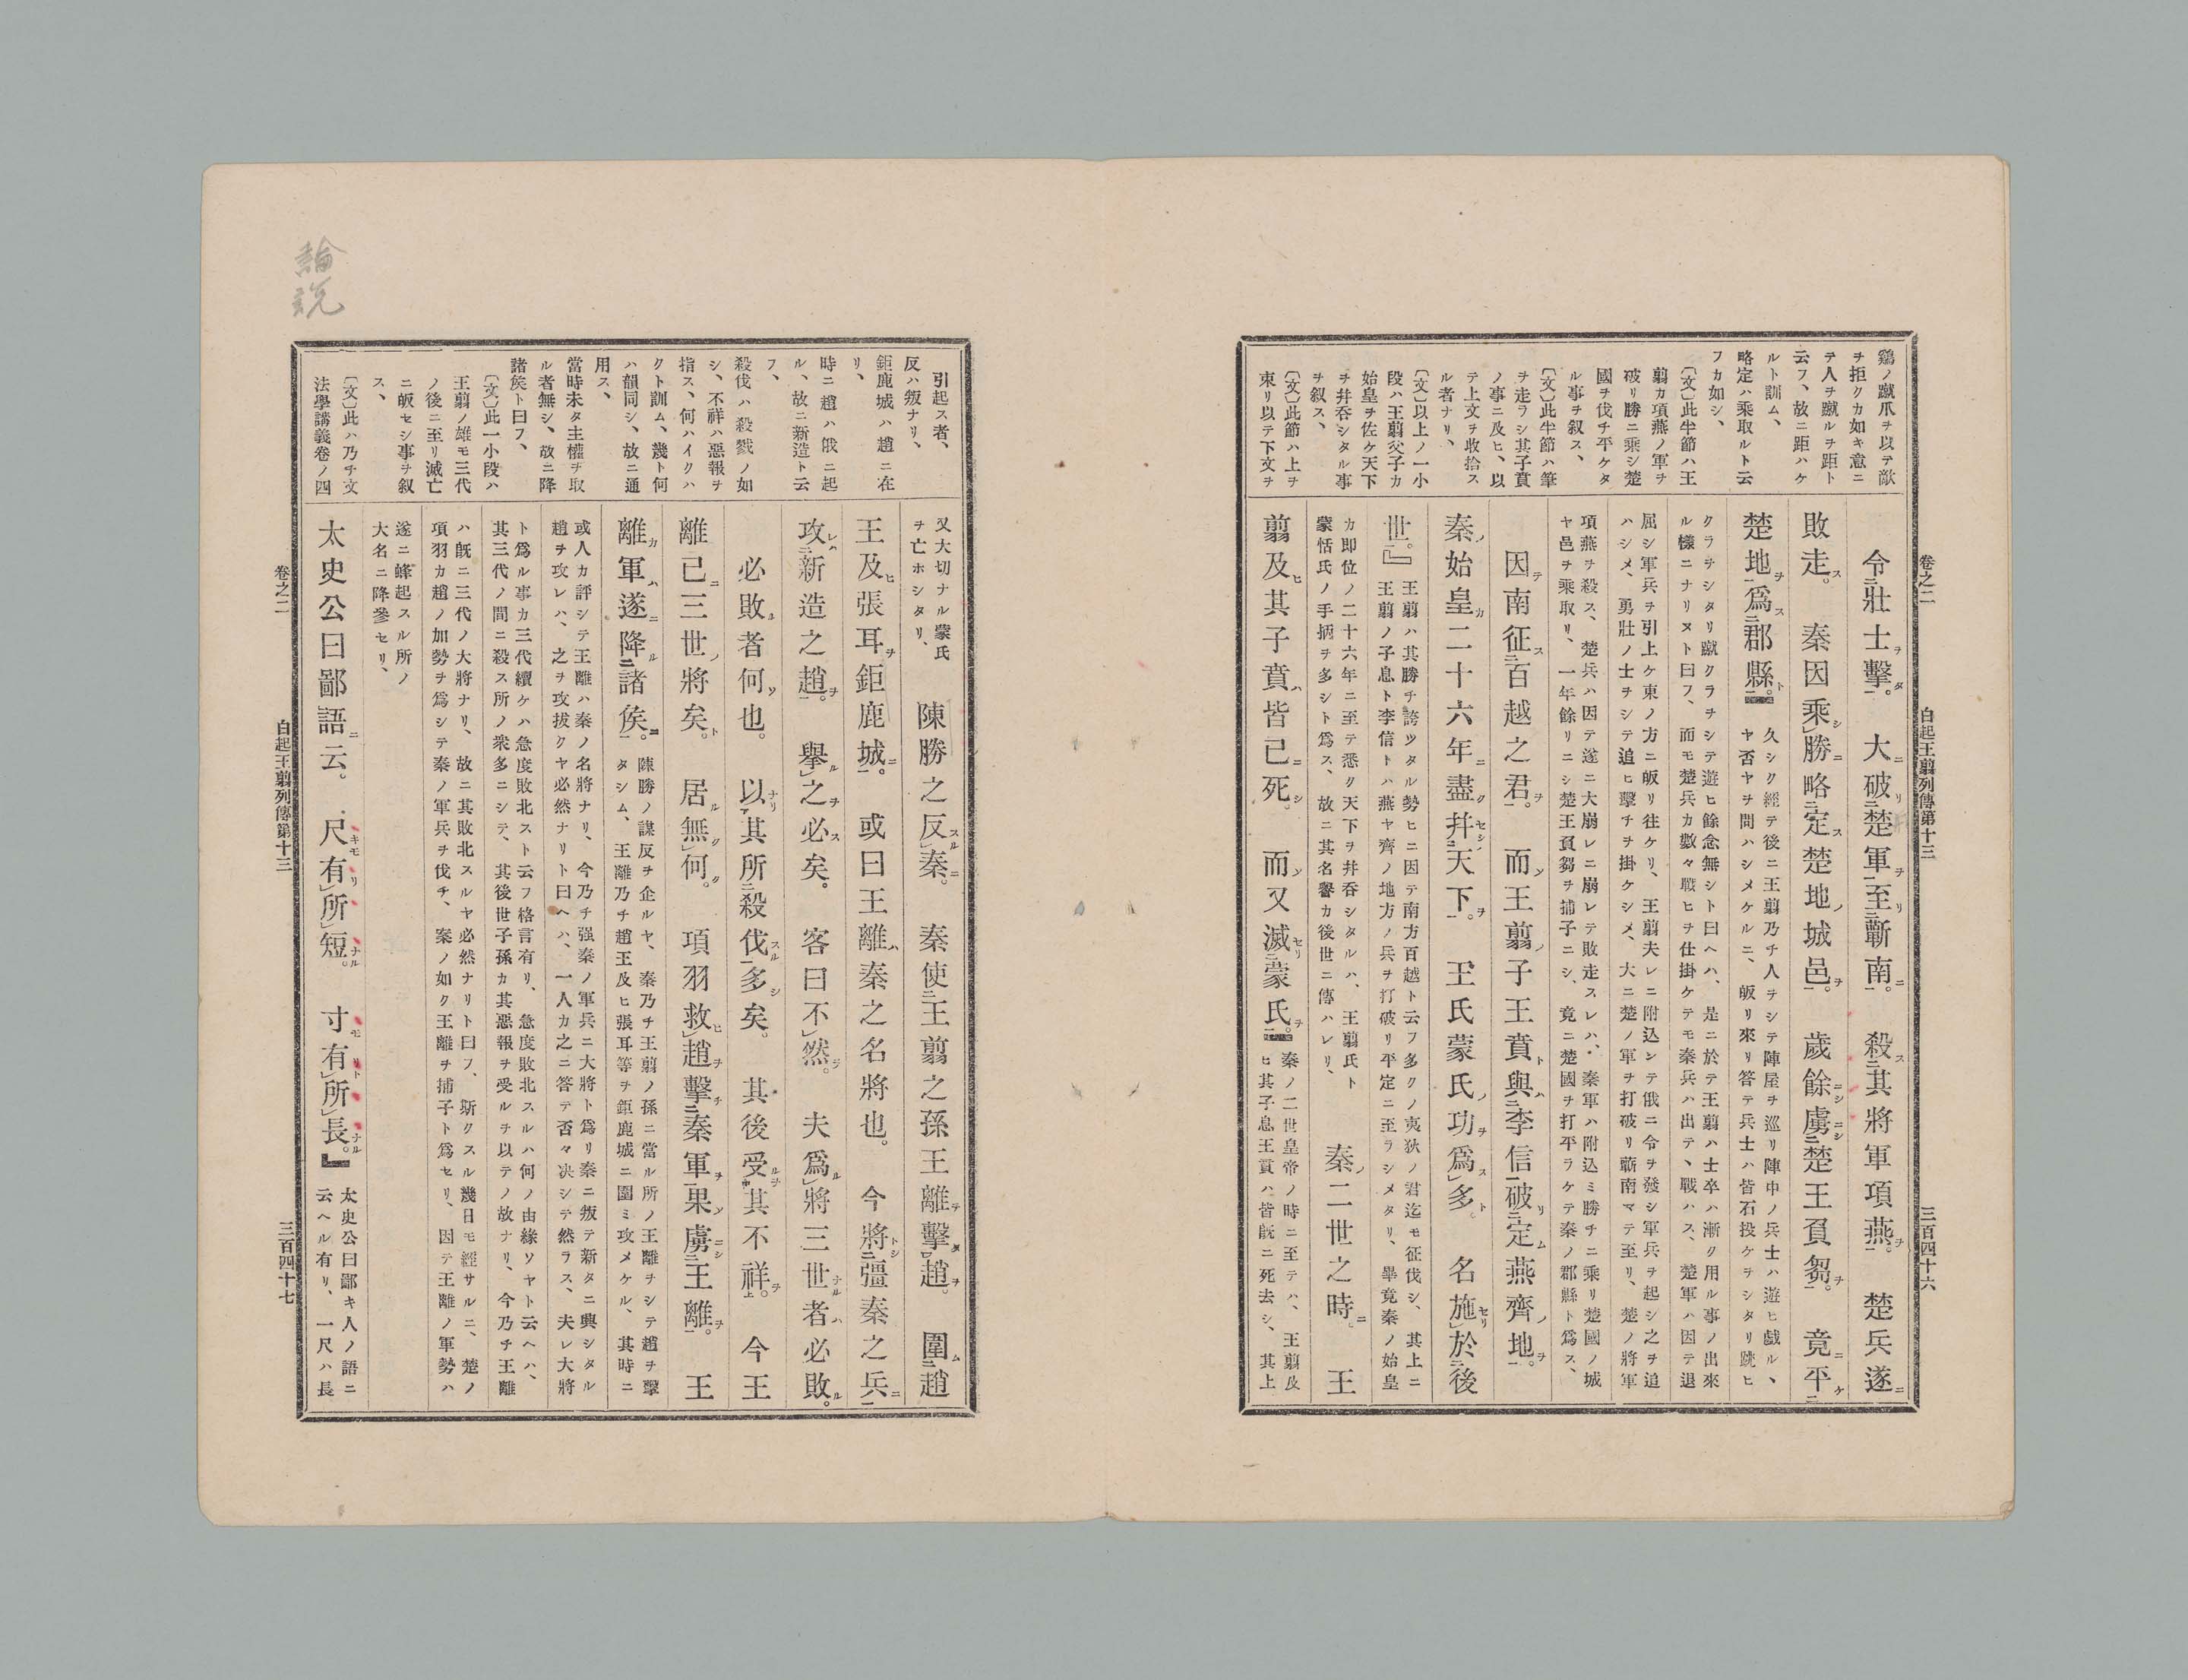 卷之二　白起王翦列傳第十三　三百四十六
鷄ノ蹴爪ヲ以テ敵
ヲ拒クカ如キ意ニ
テ人ヲ蹴ルヲ距ト
云フ、故ニ距ハケ
ルト訓ム、
略定ハ乘取ルト云
フカ如シ、
〔文〕此半節ハ王
翦カ項燕ノ軍ヲ
破リ勝ニ乘シ楚
國ヲ伐チ平ケタ
ル事ヲ叙ス、
〔文〕此半節ハ筆
ヲ走ラシ其子賁
ノ事ニ及ヒ、以
テ上文ヲ收拾ス
ル者ナリ、
〔文〕以上ノ一小
段ハ王翦父子カ
始皇ヲ佐ケ天下
ヲ幷呑シタル事
ヲ叙ス、
〔文〕此節ハ上ヲ
束リ以テ下文ヲ
令二壯士ヲ擊一。大ニ破二楚軍ヲ一至二蘄南ニ一。殺二其將軍項燕ヲ一。楚兵遂ニ
敗走ス。秦因乘シ勝ニ略二定ス楚地ノ城邑ヲ一。歲餘ニシ虜二ニシ楚王負芻ヲ一。竟ニ平二ケ
楚地ヲ一爲二ス郡縣ト一。
久シク經テ後ニ王翦乃チ人ヲシテ陣屋ヲ巡リ陣中ノ兵士ハ遊ヒ戲ル、
ヤ否ヤヲ問ハシメケルニ、皈リ來リ答テ兵士ハ皆石投ケヲシタリ跳ヒ
クラヲシタリ蹴クラヲシテ遊ヒ餘念無シト曰ヘハ、是ニ於テ王翦ハ士卒ハ漸ク用ル事ノ出來
ル樣ニナリヌト曰フ、而モ楚兵カ數々戰ヒヲ仕掛ケテモ秦兵ハ出テ丶戰ハス、楚軍ハ因テ退
屈シ軍兵ヲ引上ケ東ノ方ニ皈リ往ケリ、王翦夫レニ附込ンテ俄ニ令ヲ發シ軍兵ヲ起シ之ヲ追
ハシメ、勇壯ノ士ヲシテ追ヒ擊チヲ掛ケシメ、大ニ楚ノ軍ヲ打破リ蘄南マテ至リ、楚ノ將軍
項燕ヲ殺ス、楚兵ハ因テ遂ニ大崩レニ崩レテ敗走スレハ、秦軍ハ附込ミ勝チニ乘リ楚國ノ城
ヤ邑ヲ乘取リ、一年餘リニシ楚王負芻ヲ捕子ニシ、竟ニ楚國ヲ打平ラケテ秦ノ郡縣ト爲ス、
因テ南征二ス百越之君ヲ一。而ソ王翦ノ子王賁ト與ハ二李信一破リ二定ム燕齊ノ地ヲ一。
秦ノ始皇カ二十六年ニ盡ク幷二セシ天下ヲ一。王氏蒙氏ノ功ヲ爲ス多ト。名施二セリ於後
世一。』
王翦ハ其勝チ誇ツタル勢ヒニ因テ南方百越ト云フ多クノ夷狄ノ君迄モ征伐シ、其上ニ
王翦ノ子息ト李信トハ燕ヤ齊ノ地方ノ兵ヲ打破リ平定ニ至ラシメタリ、畢竟秦ノ始皇
カ即位ノ二十六年ニ至テ悉ク天下ヲ幷呑シタルハ、王翦氏ト
蒙恬氏ノ手柄ヲ多シト爲ス、故ニ其名譽カ後世ニ傳ハレリ、
秦ノ二世之時ニ。王
翦及ヒ其子賁ハ皆已ニ死シ。而ソ又滅二セリ蒙氏ヲ一。
秦ノ二世皇帝ノ時ニ至テハ、王翦及
ヒ其子息王賁ハ皆既ニ死去シ、其上
引起ス者、
反ハ叛ナリ、
鉅鹿城ハ趙ニ在
リ、
時ニ趙ハ俄ニ起
ル、故ニ新造ト云
フ、
殺伐ハ殺戮ノ如
シ、不祥ハ惡報ヲ
指ス、何ハイクハ
クト訓ム、幾ト何
ハ韻同シ、故ニ通
用ス、
當時未タ主權ヲ取
ル者無シ、故ニ降
諸矦ト曰フ、
〔文〕此一小段ハ
王翦ノ雄モ三代
ノ後ニ至リ滅亡
ニ皈セシ事ヲ叙
ス、
〔文〕此ハ乃チ文
法學講義卷ノ四
又大切ナル蒙氏
ヲ亡ホシタリ、
陳勝之反スルレ秦ニ。秦使二王翦之孫王離テ擊タレ趙ヲ。圍二ム趙
王及ヒ張耳ヲ鉅鹿城ニ一。或曰王離ハ秦之名將也。今將トシ二彊秦之兵ニ一
攻レハ二新造之趙ヲ一。擧ルレ之ヲ必ス矣。客曰不レ然ラ。夫爲ルレ將三世ナル者ハ必敗ル。
必敗ル者何ソ也。以ナリ二其所二殺伐スル一多シ矣。其後受ルヲ二其不祥ヲ上。今王
離已ニ三世ノ將矣ト。居ル無クレ何ク。項羽救ヒレ趙ヲ擊チ二秦軍ヲ一果ソ虜ニシ二王離ヲ一。王
離カ軍ハ遂ニ降ル二諸矦ニ一。
陳勝ノ謀反ヲ企ルヤ、秦乃チ王翦ノ孫ニ當ル所ノ王離ヲシテ趙ヲ擊
タシム、王離乃チ趙王及ヒ張耳等ヲ鉅鹿城ニ圍ミ攻メケル、其時ニ
或人カ評シテ王離ハ秦ノ名將ナリ、今乃チ强秦ノ軍兵ニ大將ト爲リ秦ニ叛テ新タニ興シタル
趙ヲ攻レハ、之ヲ攻拔クヤ必然ナリト曰ヘハ、一人カ之ニ答テ否々決シテ然ラス、夫レ大將
ト爲ル事カ三代續ケハ急度敗北スト云フ格言有リ、急度敗北スルハ何ノ由緣ソヤト云ヘハ、
其三代ノ間ニ殺ス所ノ衆多ニシテ、其後世子孫カ其惡報ヲ受ルヲ以テノ故ナリ、今乃チ王離
ハ既ニ三代ノ大將ナリ、故ニ其敗北スルヤ必然ナリト曰フ、斯クスル幾日モ經サルニ、楚ノ
項羽カ趙ノ加勢ヲ爲シテ秦ノ軍兵ヲ伐チ、案ノ如ク王離ヲ捕子ト爲セリ、因テ王離ノ軍勢ハ
遂ニ蜂起スル所ノ
大名ニ降參セリ、
太史公曰鄙語ニ云。尺キモ有リレ所レ短ナル。寸モ有リトレ所レ長ナル。』
太史公曰鄙キ人ノ語ニ
云ヘル有リ、一尺ハ長
卷之二　白起王翦列傳第十三　三百四十七
論
説